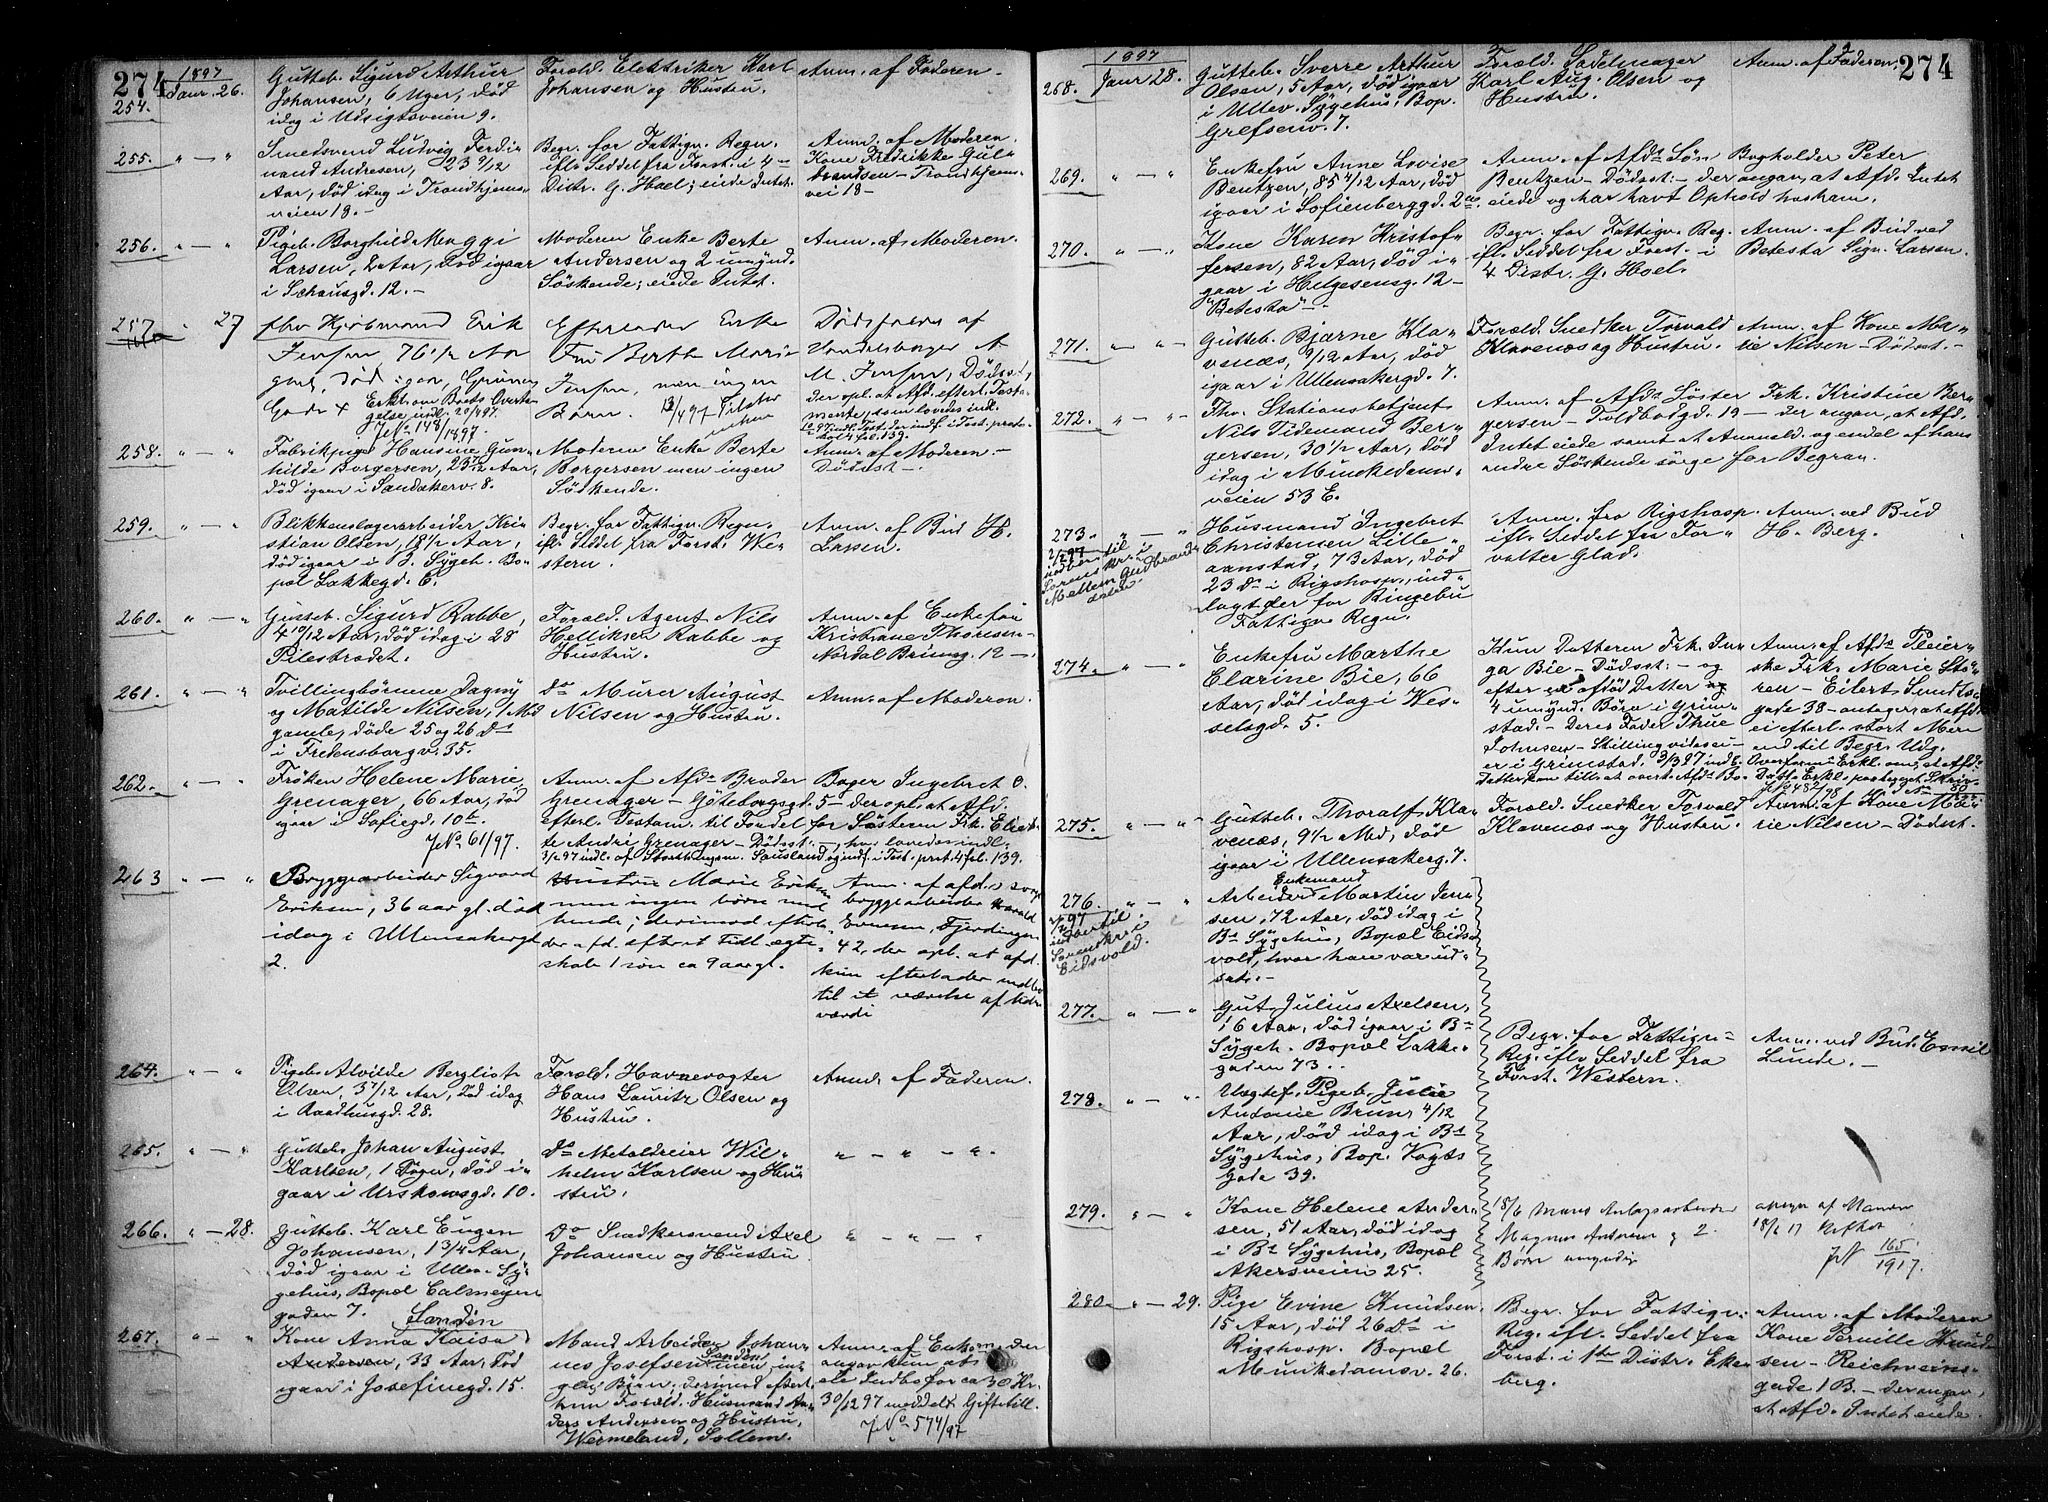 274
1897
254. Janr. 26. Gutteb. Sigurd Arthur
Johansen, 6 Uger, død
idag i Udsigtsveien 9.
Foræld. Elektriker Karl
Johansen og Hustru.
Anm. af Faderen.
255. " — " Smedsvend Ludvig Ferdi-
nand Andresen, 23 9/12
Aar, død idag i Trondhjems-
veien 18. —
Begr. for Fattigv. Regn.
ifl. Seddel fra Forst. i 4
Distr. G. Hoel; eiede Intet.
Anm. af Moderen
Kone Fredrikke Gul-
brandsen — Trondhjems-
vei 18 —
256. " — " Pigeb. Borghild Maggi
Larsen, 2 Aar, død igaar
i Schousgd. 12. —
Moderen Enke Berte
Andersen og 2 umynd.
Søskende; eiede Intet.
Anm. af Moderen.
257. " 27 fhv Kjøbmand Erik
Jensen 76 1/2 Aar
gml, død igaar, Grüners
Gade 4
Erkl. om Boets Overta-
gelse indl. 20/4 97.
J.No. 148/1897.
Efterlader Enke
Fru Berth Marie
Jensen, men ingen
Børn.
Dødsfaldet af
Handelsborger A.
M. Jensen, Dødsst,
der opl. at Afd. efterl. Testa-
mente, som lovedes indl.
258. " — " Fabrikpige Hansine Gun-
hilde Borgersen, 23 1/2 Aar,
død igaar i Sandakerv. 8.
Moderen Enke Berte
Borgersen men ingen
Södskende.
Anm. af Moderen —
Dødsst. —
259. " — " Blikkenslagerarbeider Kri-
stian Olsen, 18 1/2 Aar,
død igaar i B. Sygeh. Bo-
pæl Lakkegd. 6.
Begr. for Fattigv. Regn.
ifl. Seddel fra Forst. We-
stern.
Anm. af Bud H.
Larsen.
260. " — " Gutteb. Sigurd Rabbe,
4 10/12 Aar, død idag i 28
Pilestrædet.
Foræld. Agent Nils
Helliksen Rabbe og
Hustru.
Anm. af Enkefru
Kristiane Thoresen —
Nordal Brunsg. 12 —
261. " — " Tvillingbørnene Dagny
og Matilde Nilsen, 1 Md
gamle, døde 25 og 26 Ds
i Fredensborgv. 35.
do Murer August
Nilsen og Hustru.
Anm. af Moderen.
262. " — " Frøken Helene Marie
Grenager, 66 Aar, død
igaar i Sofiegd. 10b.
J.No. 61/97.
Anm. af Afds Broder Bager Ingebret O.
Grenager — Göteborgsgd. 5 — der opl. at Afd.
efterl. Testam. til Fordel for Søsteren Frk. Elise
te Andre Grenager — Dødsst. —, hvo lovedes indl.
263 " — " Bryggearbeider Sigvard
Eriksen, 36 aar gl. død
idag i Ullensakergd
2.
Hustru Marie Eriksen
men ingen børn med
hende; derimod efterla-
der afd. efter et tidl. ægte-
skab 1 søn ca 9 aar gl.
Anm. af afd.s svoger
bryggearbeider Harald
Evensen, Fjerdingen
42, der opl. at afd.
kun efterlader indbo
til et værelse af liden
værdi
264. " — " Pigeb. Alvilde Bergliot
Olsen, 3 7/12 Aar, død idag
i Raadhusgd. 28.
Foræld. Havnevogter
Hans Lauritz Olsen og
Hustru.
Anmd. af Faderen.
265. " — " Gutteb. Johan August
Karlsen, 1 Døgn, død i-
gaar i Urskowsgd. 10.
do Metaldreier Wil-
helm Karlsen og Hu-
stru.
" — " — ".
266. " — 28. Gutteb. Karl Eugen
Johansen, 1 3/4 Aar,
død igaar i Ullev. Sy-
gehus, Bopæl Calmeyer-
gaden 7.
Do Snedkersvend Axel
Johansen og Hustru
" — " — "
267. " — " Kone Anna Kaisa Sandén
Andersen, 33 Aar, død
igaar i Josefinegd. 15.
Mand Arbeider Johan-
nes Josefsen Sandén men in-
gen Børn, derimod efterl.
hun Foræld. Husmand An-
ders Andersen og Hustru,
Wermeland, Sollem.
Anm. af Enkem. der
angav kun at
eie Indbo for ca 30 Kr.
30/12 97 meddelt Giftetill.
J.No. 574/97
274
1897
268. Janr 28. Gutteb. Sverre Arthur
Olsen, 5 Aar, død igaar
i Ullev. Sygehus; Bop.
Grefsenv. 7.
Foræld. Sadelmager
Karl Aug. Olsen og
Hustru.
Anm. af Faderen.
269. " — " Enkefru Anne Lovise
Bentzen, 85 4/12 Aar, død
igaar i Sofienberggd. 2
Anm. af Afds Søn Bogholder Peter
Bentzen — Dødsst. — der angav, at Afd. Intet
eiede og har havt Ophold hos ham.
270. " — " Kone Karen Kristof-
fersen, 82 Aar, død i-
gaar i Helgesensg. 12 —
"Betesta" —
Begr. for Fattigv. Reg.
ifl. Seddel fra Forst. i
4 Distr. G. Hoel.
Anm. af Bud ved
Betesta Sign. Larsen.
271. " — " Gutteb. Bjarne Kla-
venæs, 9/12 Aar, død
igaar i Ullensakergd. 7.
Foræld. Snedker Torvald
Klavenæs og Hustru.
Anm. af Kone Ma-
rie Nilsen — Dødsst. —
272. " — " Fhv. Stationsbetjent
Nils Tidemand Ber-
gersen, 30 1/2 Aar, død
idag i Munkedams-
veien 53 E.
Anm. af Afds Søster Frk. Kristine Ber-
gersen — Toldbodgd. 19 — der angav, at Afd.
Intet eiede samt at Anmeld. og endel af hans
andre Søskende sørge for Begrav.
273. " " Husmand Ingebret
Christensen Lille-
aanstad, 73 Aar, død
23 Ds i Rigshosp., ind-
lagt der for Ringebu
Fattigv. Regn.
Anm. fra Rigshosp.
ifl. Seddel fra For-
valter Glad.
Anm. ved Bud
H. Berg.
2/2 97
indber. til
Sorenskr. i
Mellem Gudbrands-
dalen
274. " — " Enkefru Marthe
Elarine Bie, 66
Aar, død idag i Wes-
selsgd. 5.
Kun Datteren Frk. In-
ga Bie — Dødsst. — og
efter en afdød Datter og
4 umynd. Børn i Grim-
stad. — Deres Fader Thue
Johnsen — Stilling vides ei —
er i Grimstad.
Anm. af Afds Pleier-
ske Frk. Marie Stø-
ren — Eilert Sundts-
gade 38 — antager at Afd.
ei efterl. stort Mere
end til Begr. Udg.
275. " — " Gutteb. Thoralf Kla-
venæs, 9 1/2 Md, døde
igaar i Ullensakerg. 7.
Foræld. Snedker Torvald
Klavenæs og Hustru.
Anm. af Kone Ma-
rie Nilsen — Dødsst.
276. " — " Arbeider Enkemand Martin Jen-
sen, 72 Aar, død idag i
Bs Sygehus, Bopæl Eids-
vold, hvor han var ud-
sat. —
indber til
Sorenskr. i
Eidsvold.
277. " — " Gut Julius Axelsen,
16 Aar, død igaar i Bs
Sygeh. Bopæl Lakke-
gaden 73 ..
Begr. for Fattigv.
Reg. ifl. Seddel fra
Forst. Western.
Anm. ved Bud. Esmil
Lunde. —
278. " — " Uægtef. Pigeb. Julie
Antonie Bruns 4/12
Aar, død idag i Bs
Sygehus, Bop. Vogts
Gade 39.
279. " — " Kone Helene Ander-
sen, 51 Aar, død idag
i Bs Sygehus, Bopæl
Akersveien 25.
Magnus Andersen og 2
Børn umyndig
angav af Manden
18/6 17
J.N 165/1917.
280. " — 29. Pige Evine Knudsen
15 Aar, død 26 Ds i
Rigshosp. Bopæl
Munkedamsv. 26.
Begr. for Fattigv.
Reg. ifl. Seddel fra
Forst. i 1ste Distr. Eke-
berg.
Anm. af Moderen
Kone Pernille Knud-
sen — Reichweins-
gade 1 B. — der angav,
at Afd. Intet eiede.